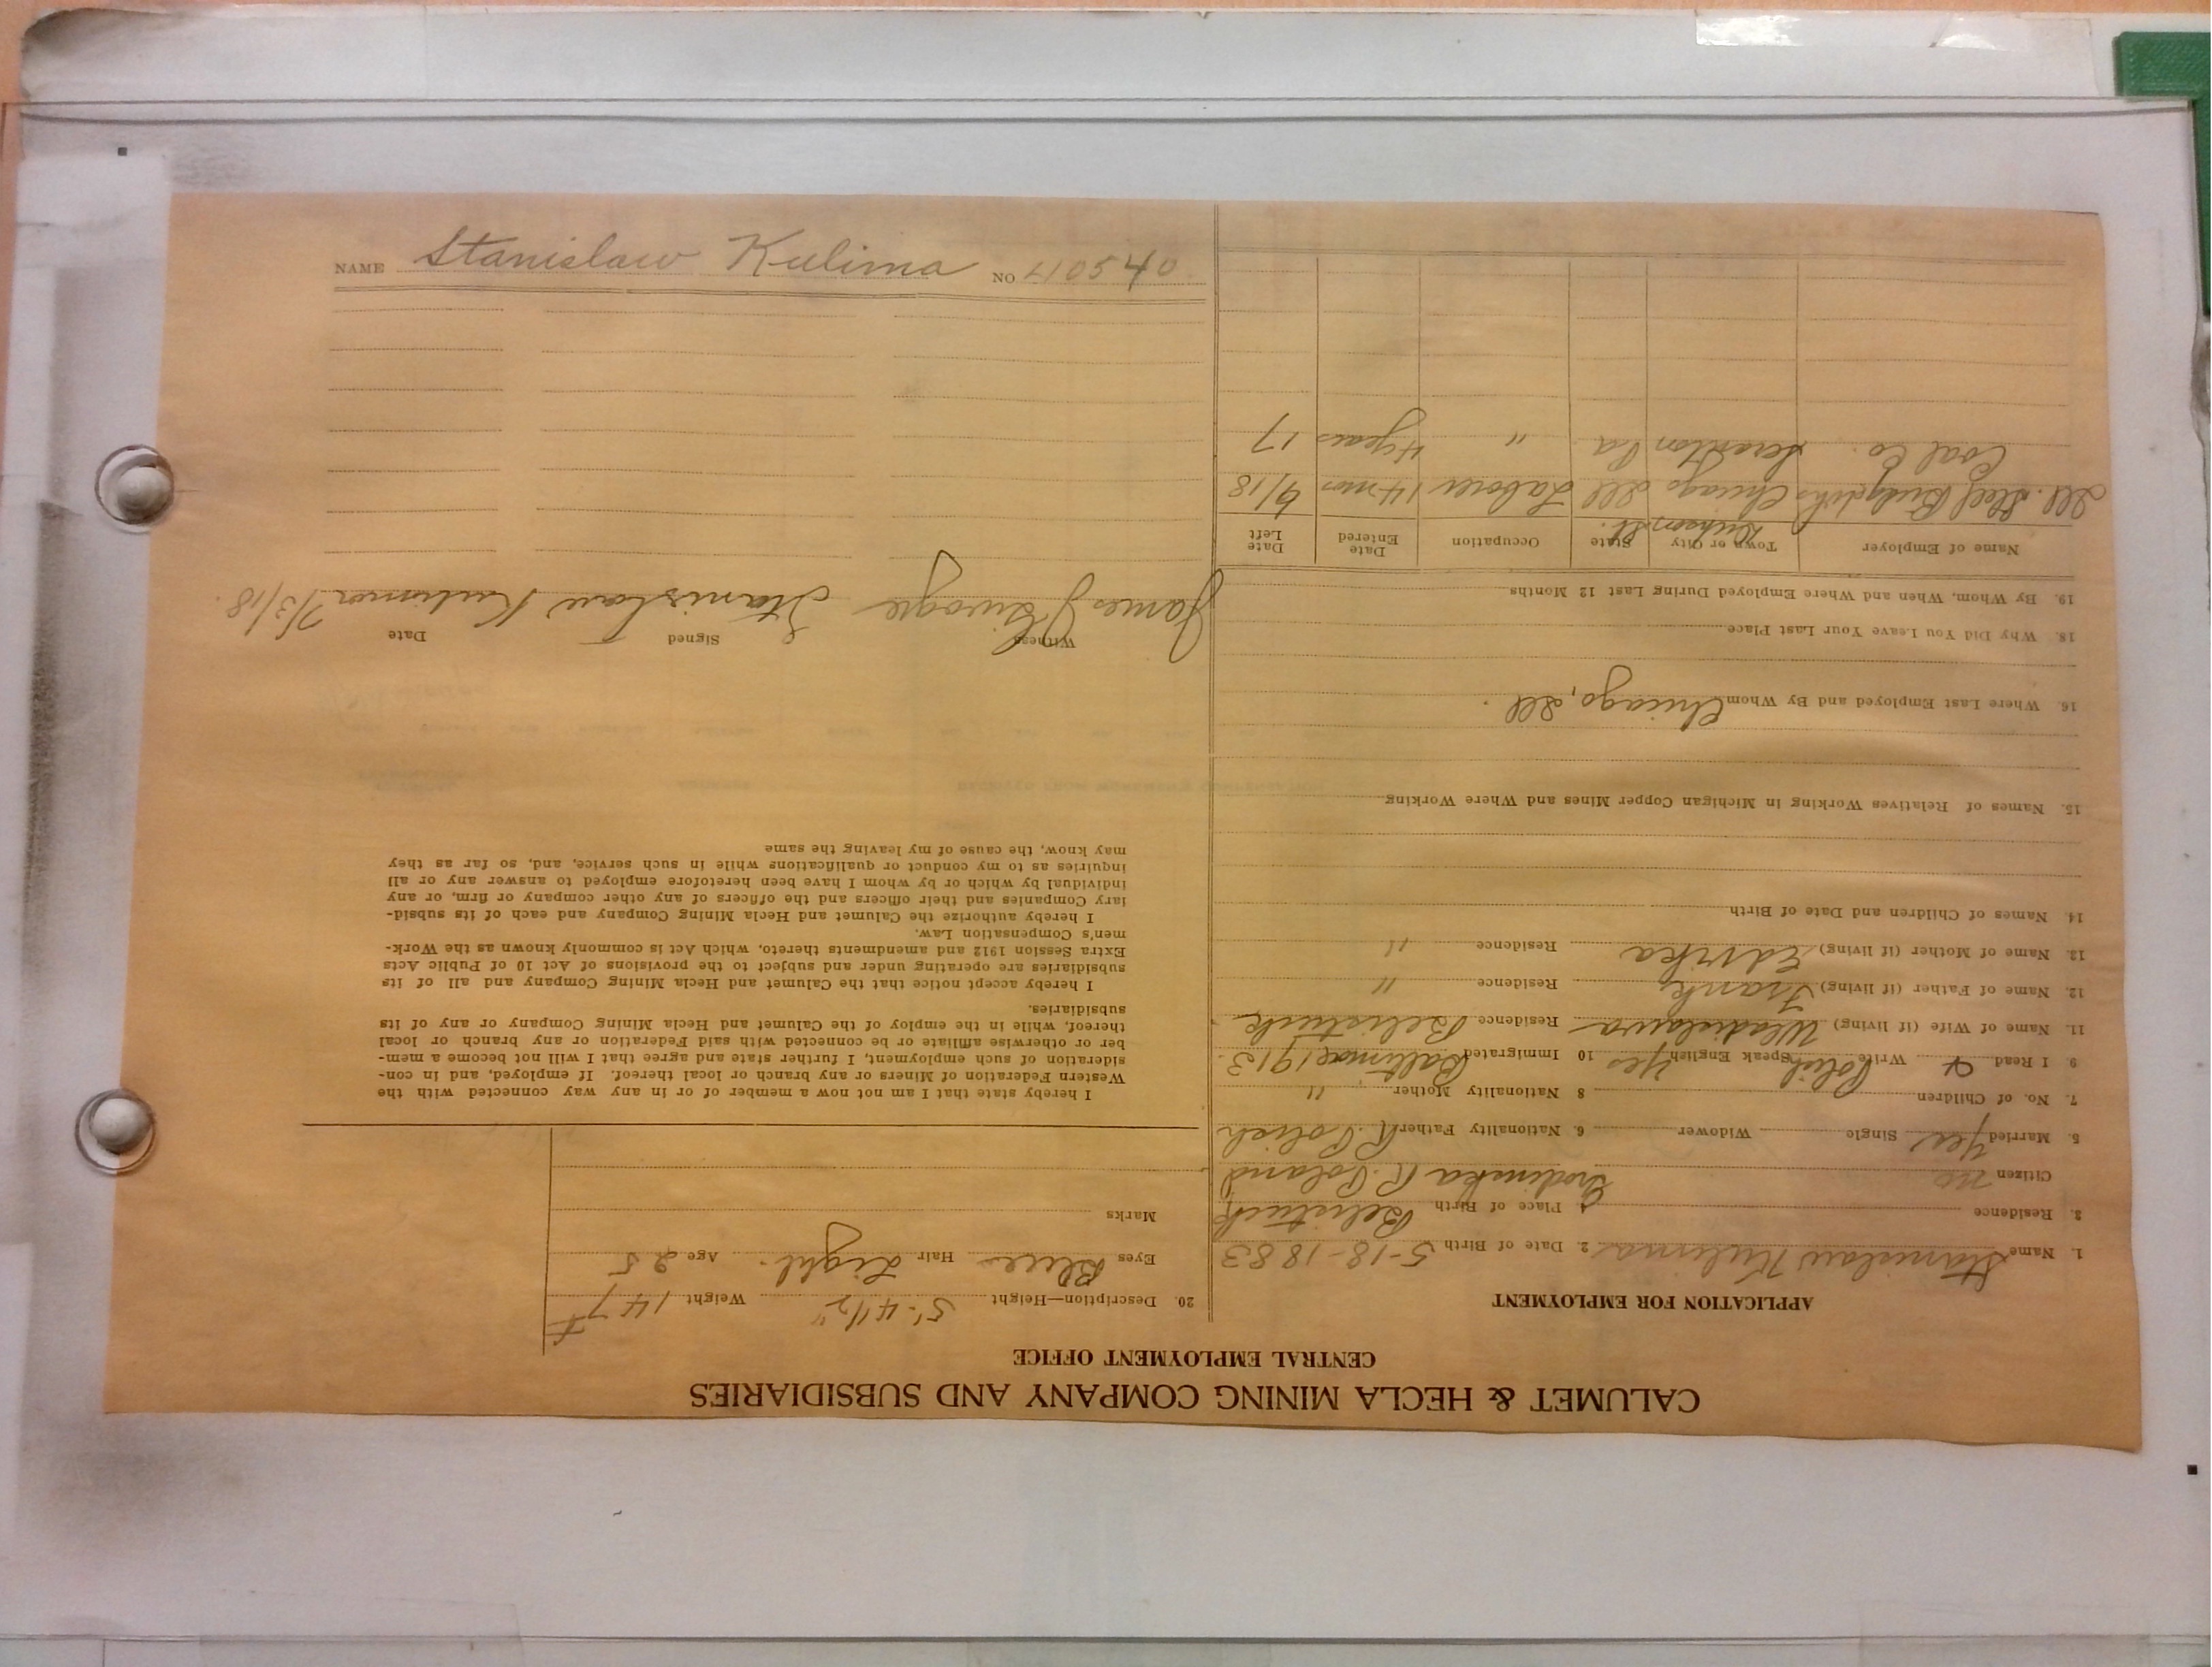 CALUMET & HECLA MINING COMPANY AND SUBSIDIARIES
CENTRAL EMPLOYMENT OFFICE
APPLICATION FOR EMPLOYMENT
1. Name Stanislaw Kulima 2. Date of Birth 5-18-1883
3. Residence 4. Place of Birth Belistuck
Citizen no Grodinska R. Poland
5. Married Yes Single Widower 6. Nationality Father R. Polish
7. No. of Children 8 Nationality Mother "
9. I Read & Write Polish Speak English Yes 10 Immigrated Baltimore 1913.
11. Name of Wife (if living) Wladislawa Residence Belistuck
12. Name of Father (if living) Frank Residence "
13. Name of Mother (if living) Residence "
14. Names of Children and Date of Birth
15. Names of Relatives Working in Michigan Copper Mines and Where Working
16. Where Last Employed and By Whom Chicago, Ill.
18. Why Did You Leave Your Last Place
19. By Whom, When and Where Employed During Last 12 Months
Name of Employer Town or City State Occupation Date Entered Date Left
Ill. Steel Chicago Ill Laborer 14 mos 6/18
Coal Co. Scranton Pa " 4 years 17
20. Description—Height 5'-4 1/2" Weight 147 #
Eyes Blue Hair Light. Age 25
Marks
I hereby state that I am not now a member of or in any way connected with the
Western Federation of Miners or any branch or local thereof. If employed, and in con-
sideration of such employment, I further state and agree that I will not become a mem-
ber or otherwise affiliate or be connected with said Federation or any branch or local
thereof, while in the employ of the Calumet and Hecla Mining Company or any of its
subsidiaries.
I hereby accept notice that the Calumet and Hecla Mining Company and all of its
subsidiaries are operating under and subject to the provisions of Act 10 of Public Acts
Extra Session 1912 and amendments thereto, which Act is commonly known as the Work-
men's Compensation Law.
I hereby authorize the Calumet and Hecla Mining Company and each of its subsid-
iary Companies and their officers and the officers of any other company or firm, or any
individual by which or by whom I have been heretofore employed to answer any or all
inquiries as to my conduct or qualifications while in such service, and, so far as they
may know, the cause of my leaving the same
Witness Signed Date
James Stanislaw Kulima 7/3/18.
NAME Stanislaw Kulima NO 410540